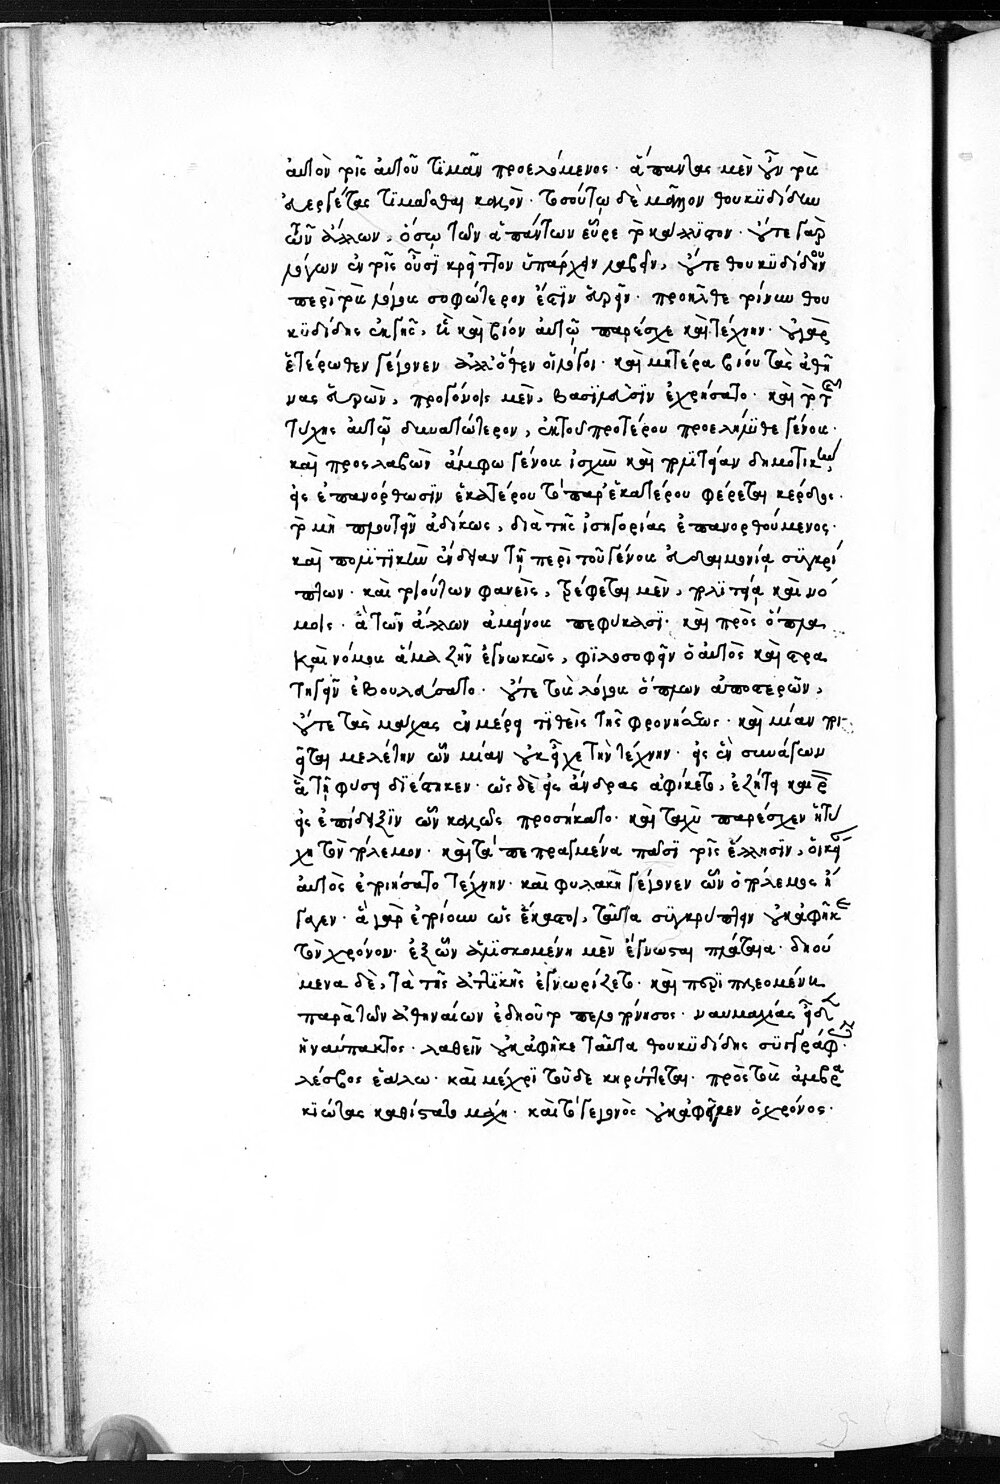 αὐτὸν τοῖς αὐτοῦ τιμᾶν προελόμενος· ἅπαντας μὲν οὖν τοὺς
εὐεργέτας τιμᾶσθαι καλὸν· τοσούτῳ δὲ μᾶλλον θουκυδίδην
τῶν ἄλλων, ὅσῳ τῶν ἁπάντων εὗρε τὸ κάλλιστον· οὔτε γὰρ
λόγων ἐν τοῖς οὖσι κρεῖττον ὑπάρχειν λαβεῖν, οὔτε θουκυδίδου
περὶ τοὺς λόγους σοφώτερον ἔστιν εὑρεῖν· προῆλθε τοίνυν θου
κυδίδης ἐκ γῆς, ἣ καὶ βίον αὐτῷ παρέσχε καὶ τέχνην· οὐ γὰρ
ἑτέρωθεν γέγονεν ἀλλ' ὅθεν οἱ λόγοι· καὶ μητέρα βίου τὰς ἀθή
νας εὑρὼν, προγόνοις μὲν, βασιλεῦσιν ἐχρήσατο· καὶ τὸ τῆς
τύχης αὐτῷ δυνατώτερον, ἐκ τοῦ προτέρου προελήλυθε γένους·
καὶ προσλαβὼν ἄμφω γένους ἰσχὺν καὶ πολιτείαν δημοτικὴν
εἰς ἐπανόρθωσιν ἑκατέρου τὸ παρ' ἑκατέρου φέρεται κέρδος·
τὸ μὴ πλουτεῖν ἀδίκως, διὰ τῆς ἰσηγορίας ἐπανορθούμενος·
καὶ πολιτικὴν ἔνδειαν τῇ περὶ τοῦ γένους εὐδαιμονίᾳ συγκρύ
πτων· καὶ τοιούτων φανεὶς, τρέφεται μὲν, πολιτείᾳ καὶ νό
μοις· ἃ τῶν ἄλλων ἀμείνους πεφύκασι· καὶ πρὸς ὅπλα
καὶ νόμους ἅμα ζῆν ἐγνωκὼς, φιλοσοφεῖν ὁ αὐτὸς καὶ στρα
τηγεῖν ἐβουλεύσατο· οὔτε τοὺς λόγους ὅπλων ἀποστερῶν,
οὔτε τὰς μάχας ἐν μέρει τιθεὶς τῆς φρονήσεως· καὶ μίαν ποι
εῖται μελέτην ὧν μίαν οὐκ εἶχε τὴν τέχνην· εἰς ἓν συνάγων
ἃ τῇ φύσει διέστηκεν· ὡς δὲ εἰς ἄνδρας ἀφίκετο, ἐζήτει καιρὸν
εἰς ἐπίδειξιν ὧν καλῶς προσήκατο· καὶ ταχὺ παρέσχεν ἡ τύ
χη τὸν πόλεμον· καὶ τὰ πεπραγμένα πᾶσι τοῖς ἕλλησιν, οἰκείαν
αὐτὸς ἐποιήσατο τέχνην· καὶ φυλακὴ γέγονεν ὧν ὁ πόλεμος ἤ
γαγεν· ἃ γὰρ ἐποίουν ὡς ἕκαστοι, ταῦτα συγκρύπτειν οὐκ ἀφῆκε
τὸν χρόνον· ἐξ ὧν ἁλισκομένη μὲν ἔγνωσται πλάταια· δῃού
μενα δὲ, τὰ τῆς ἀττικῆς ἐγνωρίζετο· καὶ περιπλεομένη
παρὰ τῶν ἀθηναίων ἐδῃοῦτο πελοπόννησος· ναυμαχίας εἶδεν
ἡ ναύπακτος· λαθεῖν οὐκ ἀφῆκε ταῦτα θουκυδίδης συγγράφων·
λέσβος ἑάλω· καὶ μέχρι τοῦδε κηρύττεται· πρὸς τοὺς ἀμβρα
κιώτας καθίστατο μάχη· καὶ τὸ γεγονὸς οὐκ ἀφεῖλεν ὁ χρόνος·